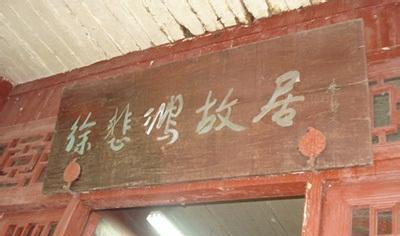 徐悲鸿故居